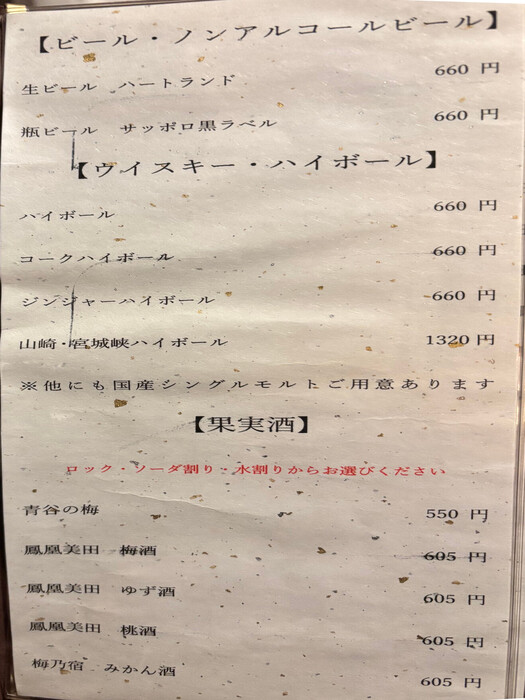 【ビール・ノンアルコールビール】
生ビール　ハートランド　660 円
瓶ビール　サッポロ黒ラベル　660 円
【ウイスキー・ハイボール】
ハイボール　660 円
コークハイボール　660 円
ジンジャーハイボール　660 円
山崎・宮城峡ハイボール　1320 円
※他にも国産シングルモルトご用意あります
【果実酒】
ロック・ソーダ割り・水割りからお選びください
青谷の梅　550 円
鳳凰美田　梅酒　605 円
鳳凰美田　ゆず酒　605 円
鳳凰美田　桃酒　605 円
梅乃宿　みかん酒　605 円